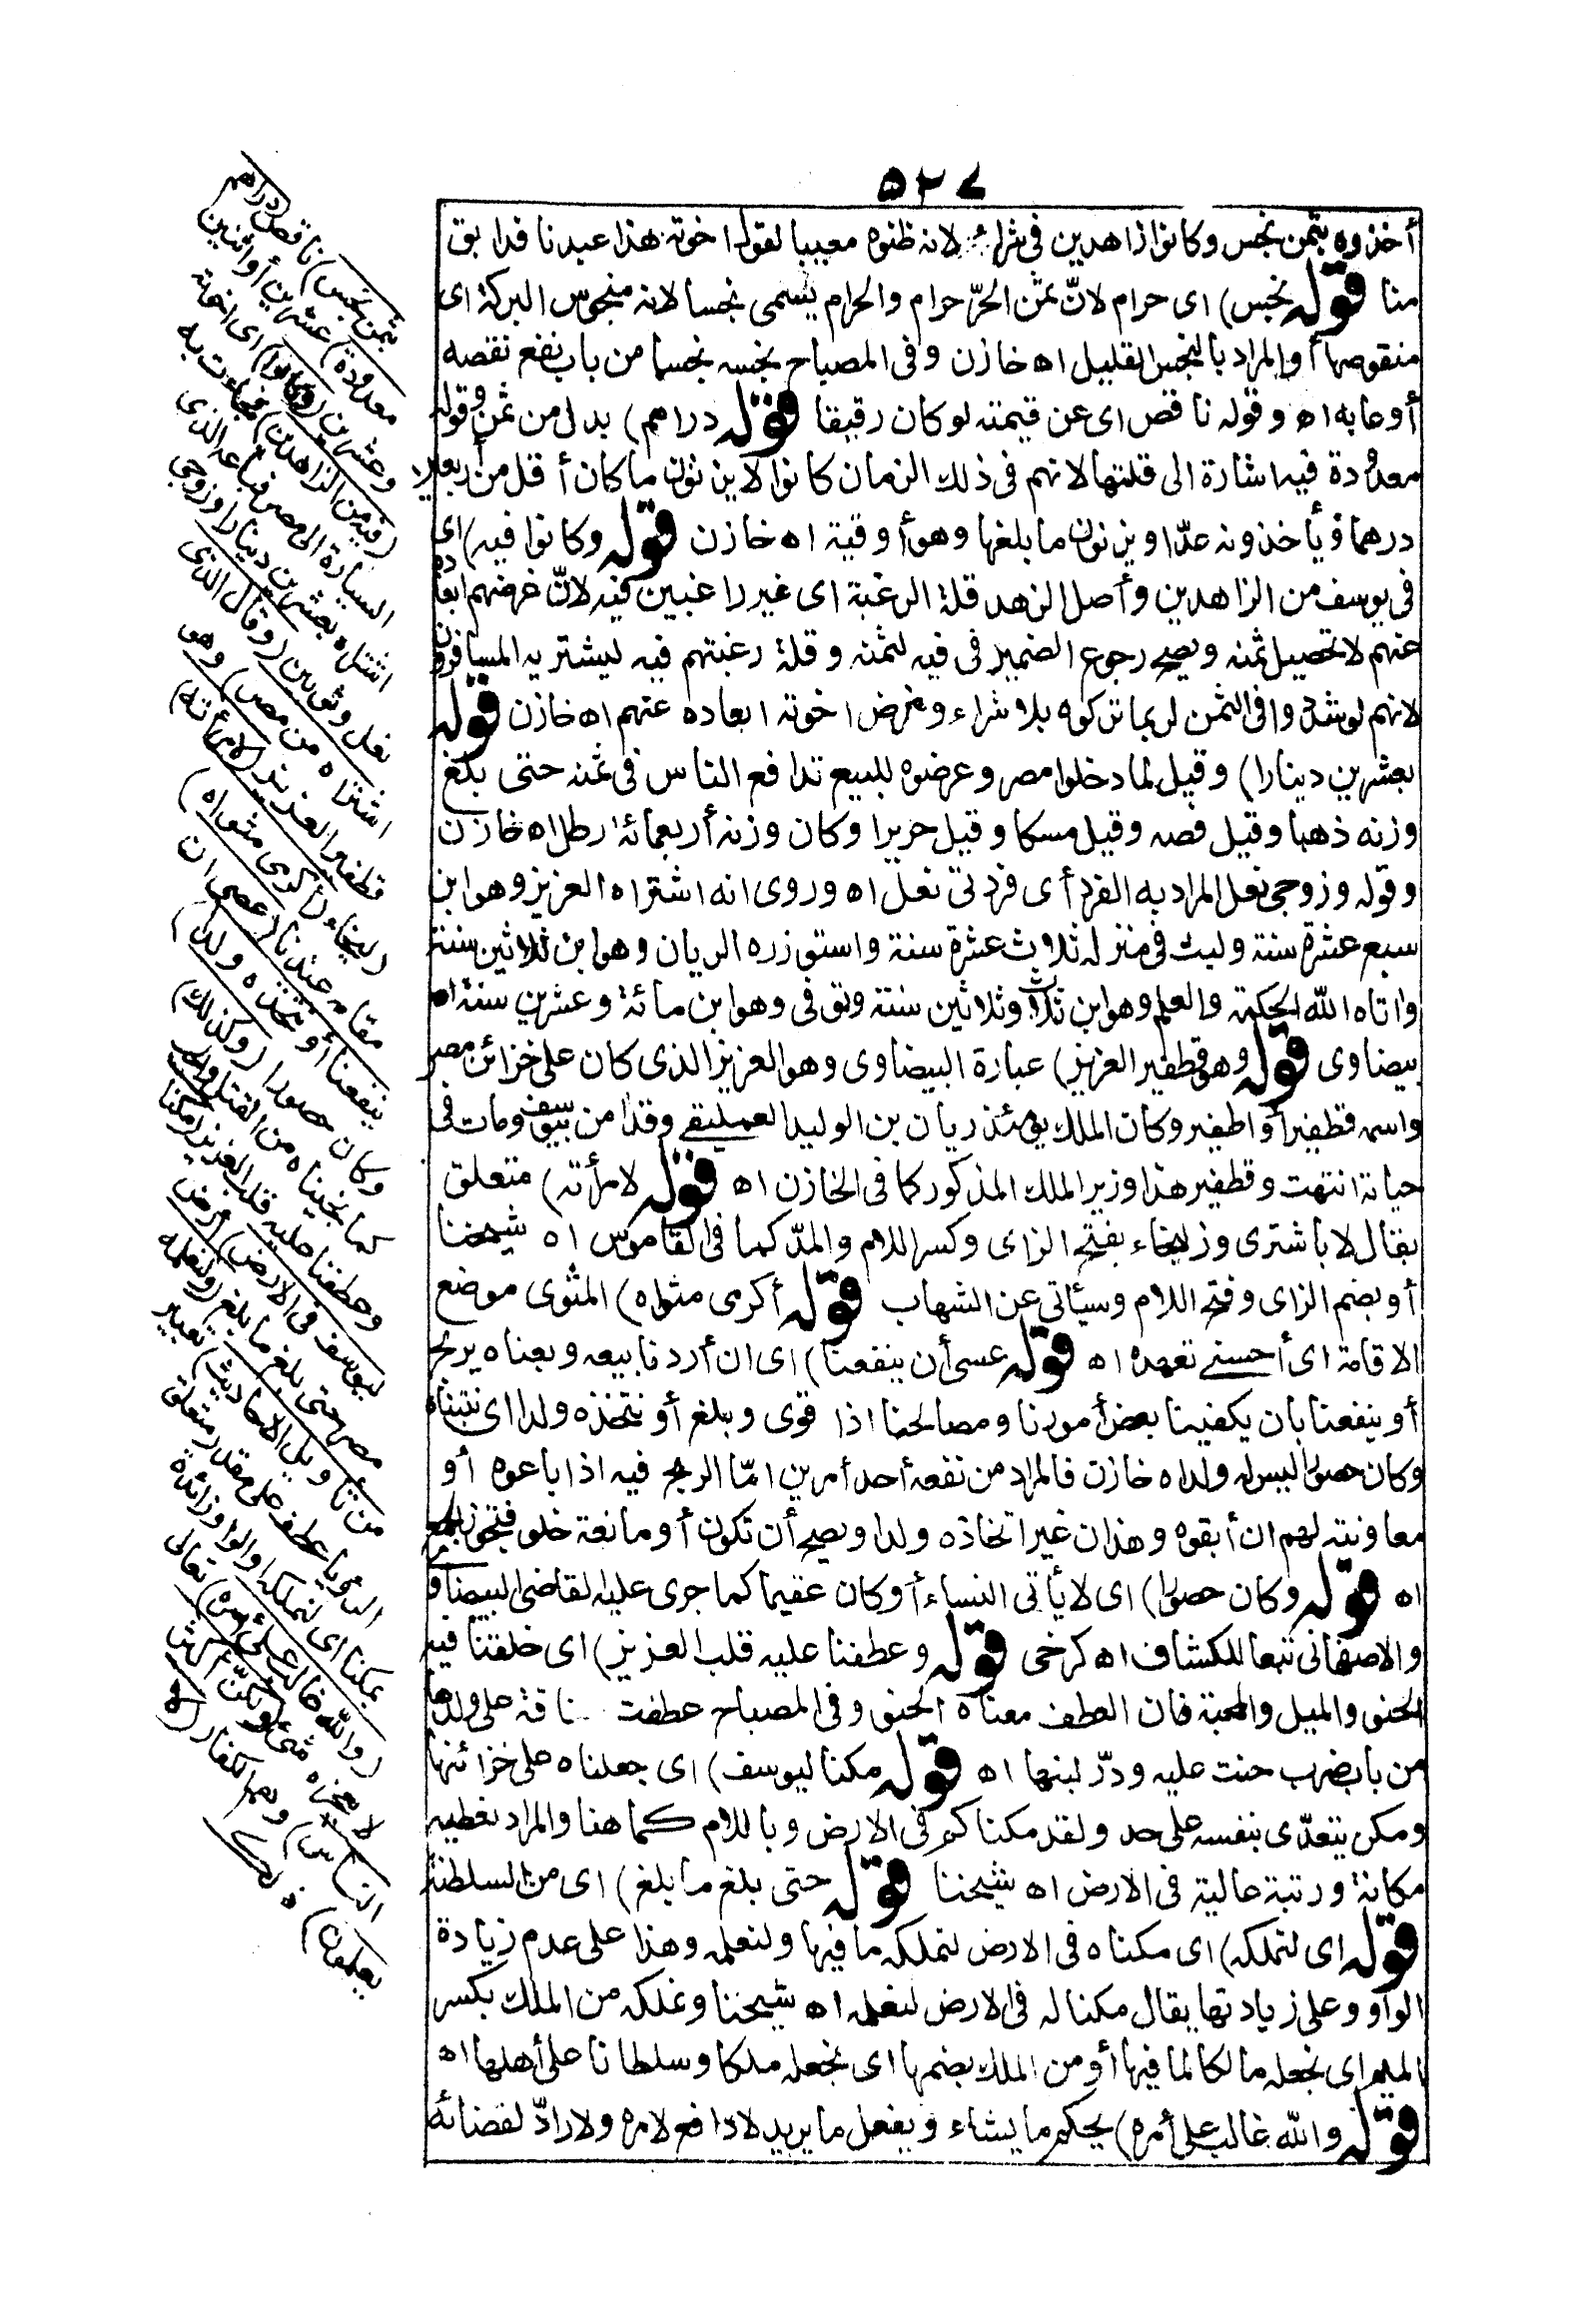 ٥٢٧
أخذوه بثمن بخس وكانوا زاهدين فى شرائه لانه ظنوه معيبا لقول اخوته هذا عبدنا قد ابق
منا قوله بخس) اى حرام لانّ ثمن الحرّ حرام والحرام يسمى بخسا لانه منحوس البركة اى
منقوصها أو المراد بالبخس القليل اه خازن وفى المصباح بخسه بخسا من باب نفع نقصه
أو عابه اه وقوله ناقص اى عن قيمته لو كان رقيقا قوله دراهم) بدل من ثمن وقوله
معدودة فيه اشارة الى قلتها لانهم فى ذلك الزمان كانوا لا يزنون ما كان أقل من أربعين
درهما ويأخذونه عدّا ويزنون ما بلغها وهو أوقية اه خازن قوله وكانوا فيه) اى
فى يوسف من الزاهدين وأصل الزهد قلة الرغبة اى غير راغبين فيه لانّ غرضهم ابعاده
عنهم لا تحصيل ثمنه ويصح رجوع الضمير فى فيه لثمنه وقلة رغبتهم فيه ليشتريه المسافرون
لانهم لو شدّدوا فى الثمن لربما تركوه بلا شراء وغرض اخوته ابعاده عنهم اه خازن قوله
بعشرين دينارا) وقيل لما دخلوا مصر وعرضوه للبيع تدافع الناس فى ثمنه حتى بلغ
وزنه ذهبا وقيل فضه وقيل مسكا وقيل حريرا وكان وزنه أربعمائة رطل اه خازن
وقوله وزوجى نعل المراد به الفرد أى فردتى نعل اه وروى انه اشتراه العزيز وهو ابن
سبع عشرة سنة ولبث فى منزله ثلاث عشرة سنة واستوزره الريان وهو ابن ثلاثين سنة
واتاه الله الحكمة والعلم وهو ابن ثلاث وثلاثين سنة وتوفى وهو ابن مائة وعشرين سنة اه
بيضاوى قوله وهو قطفير العزيز) عبارة البيضاوى وهو العزيز الذى كان على خزائن مصر
واسمه قطفير أو اطفير وكان الملك يومئذ ريان بن الوليد العمليقى وقد آمن بيوسف ومات فى
حياته انتهت وقطفير هذا وزير الملك المذكور كما فى الخازن اه قوله لامرأته) متعلق
بقال لا باشترى وزليخاء بفتح الزاى وكسر اللام والمدّ كما فى القاموس اه شيخنا
أو بضم الزاى وفتح اللام وسيأتى عن الشهاب قوله أكرمى مثواه) المثوى موضع
الاقامة اى أحسنى تعهده اه قوله عسى أن ينفعنا) اى ان أردنا بيعه وبعناه بربح
أو ينفعنا بان يكفينا بعض أمورنا ومصالحنا اذا قوى وبلغ أو نتخذه ولدا اى نتبناه
وكان حصورا ليس له ولد اه خازن فالمراد من نفعه أحد أمرين امّا الربح فيه اذا باعوه أو
معاونته لهم ان أبقوه وهذان غير اتخاذه ولدا ويصح أن تكون أو مانعة خلو فتجوز الجمع
اه قوله وكان حصورا) اى لا يأتى النساء أو كان عقيما كما جرى عليه القاضى البيضاوى
والاصفهانى تبعا للكشاف اه كرخى قوله وعطفنا عليه قلب العزيز) اى خلقنا فيه
الحنو والميل والمحبة فان العطف معناه الحنو وفى المصباح عطفت ناقة على ولدها
من باب ضرب حنت عليه ودرّ لبنها اه قوله مكنا ليوسف) اى جعلناه على خزائنها
ومكن يتعدّى بنفسه على حد ولقد مكناكم فى الارض وباللام كما هنا والمراد نعطيه
مكانة ورتبة عالية فى الارض اه شيخنا قوله حتى بلغ ما بلغ) اى من السلطنة
قوله اى لنملكه) اى مكناه فى الارض لنملكه ما فيها ولنعلمه وهذا على عدم زيادة
الواو وعلى زيادتها يقال مكنا له فى الارض لنعلمه اه شيخنا ونملكه من الملك بكسر
الميم اى نجعله مالكا لما فيها أو من الملك بضمها اى نجعله ملكا وسلطانا على أهلها اه
قوله والله غالب على أمره) يحكم ما يشاء ويفعل ما يريد لا دافع لامره ولا رادّ لقضائه
بثمن بخس) ناقص (دراهم
معدودة) عشرين أو اثنين
وعشرين (وكانوا) اى اخوته
(فيه من الزاهدين) فجاءت به
السيارة الى مصر فباعه الذى
اشتراه بعشرين دينارا وزوجى
نعل وثوبين (وقال الذى
اشتراه من مصر) وهو
قطفير العزيز (لامرأته)
زليخاء (أكرمى مثواه)
مقامه عندنا (عسى ان
ينفعنا أو نتخذه ولدا)
وكان حصورا (وكذلك)
كما نجيناه من القتل والجب
وعطفنا عليه قلب العزيز (مكنا
ليوسف فى الارض) أرض
مصر حتى بلغ ما بلغ (ولنعلمه
من تأويل الاحاديث) تعبير
الرؤيا عطف على مقدر متعلق
بمكنا اى لنملكه او الواو زائدة
(والله غالب على أمره) تعالى
لا يعجزه شئ (ولكنّ أكثر
الناس) وهم الكفار (لا
يعلمون) ذلك